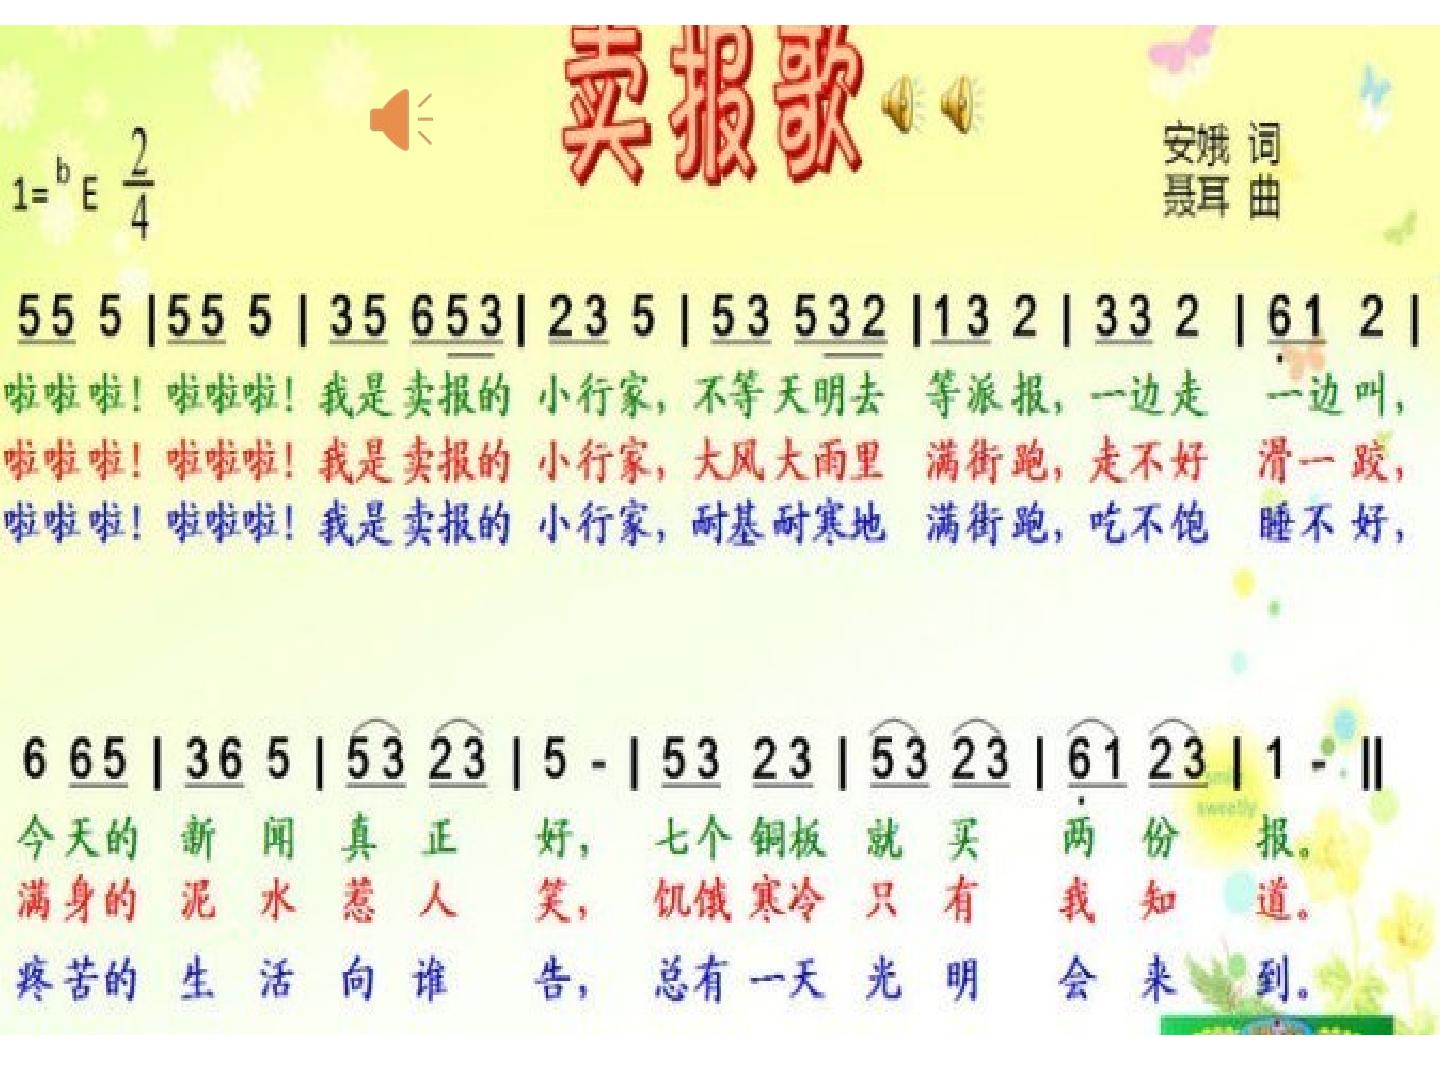 卖报歌
安娥 词
1=ᵇE 2/4
聂耳 曲
55 5 | 55 5 | 35 653 | 23 5 | 53 532 | 13 2 | 33 2 | 6̣1 2 |
啦啦啦! 啦啦啦! 我是卖报的 小行家, 不等天明去 等派报, 一边走 一边叫,
啦啦啦! 啦啦啦! 我是卖报的 小行家, 大风大雨里 满街跑, 走不好 滑一跤,
啦啦啦! 啦啦啦! 我是卖报的 小行家, 耐基耐寒地 满街跑, 吃不饱 睡不好,
6 65 | 36 5 | 53 23 | 5 - | 53 23 | 53 23 | 6̣1 23 | 1 - ‖
今天的 新闻真正好, 七个铜板就买两份报。
满身的泥水惹人笑, 饥饿寒冷只有我知道。
疼苦的生活向谁告, 总有一天光明会来到。
sweetly